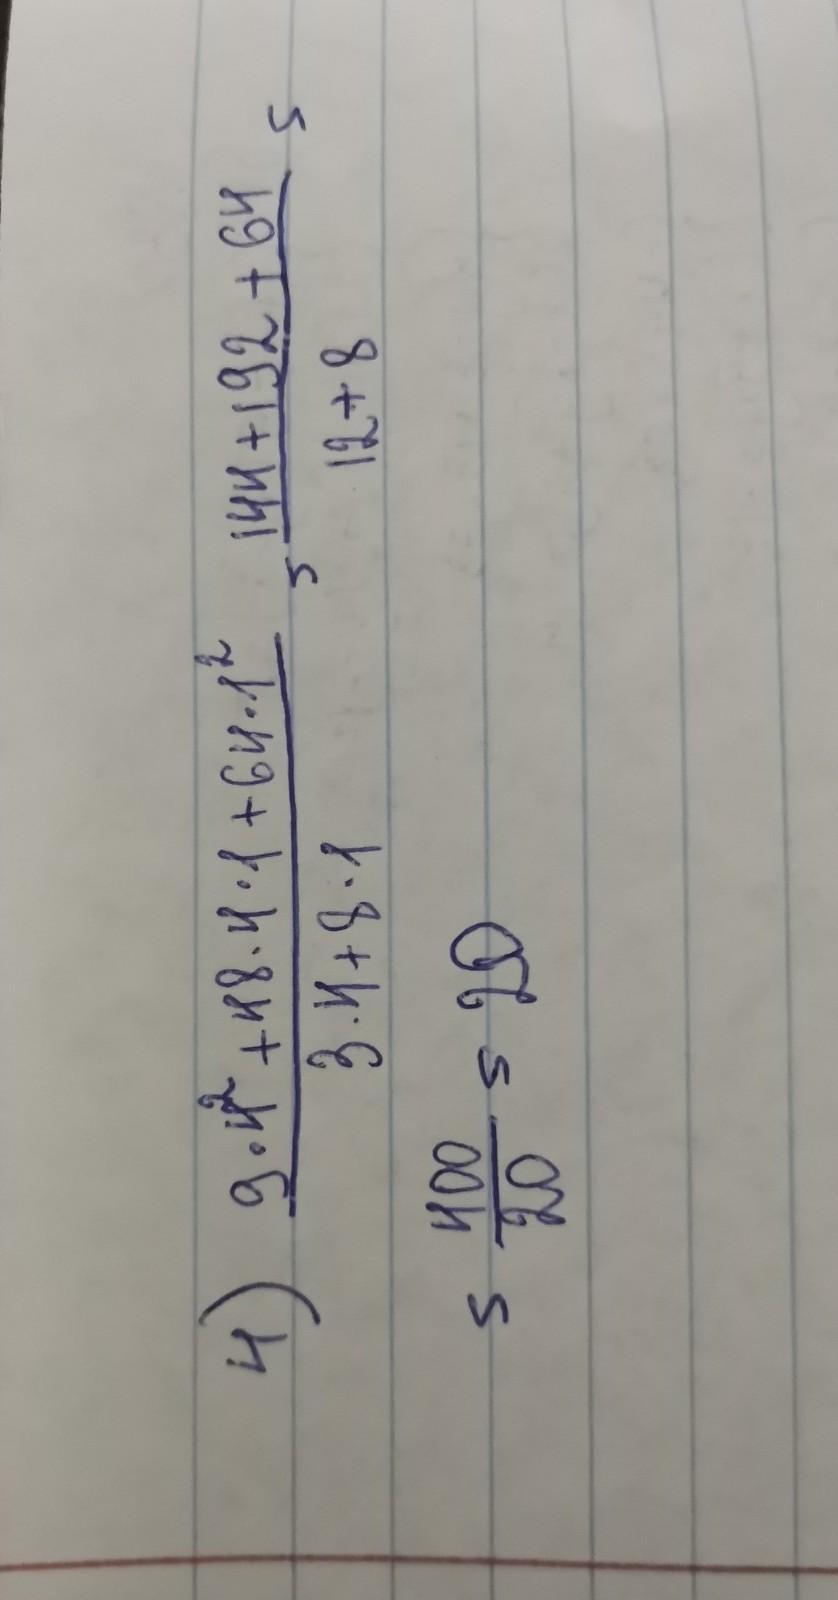 4) (9·4² + 48·4·1 + 64·1²)/(3·4 + 8·1) = (144 + 192 + 64)/(12 + 8) =
= 400/20 = 20